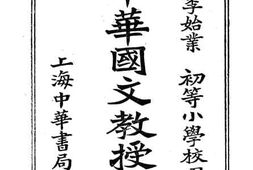 季始業 初等小學校
華國文教授
上海中華書局